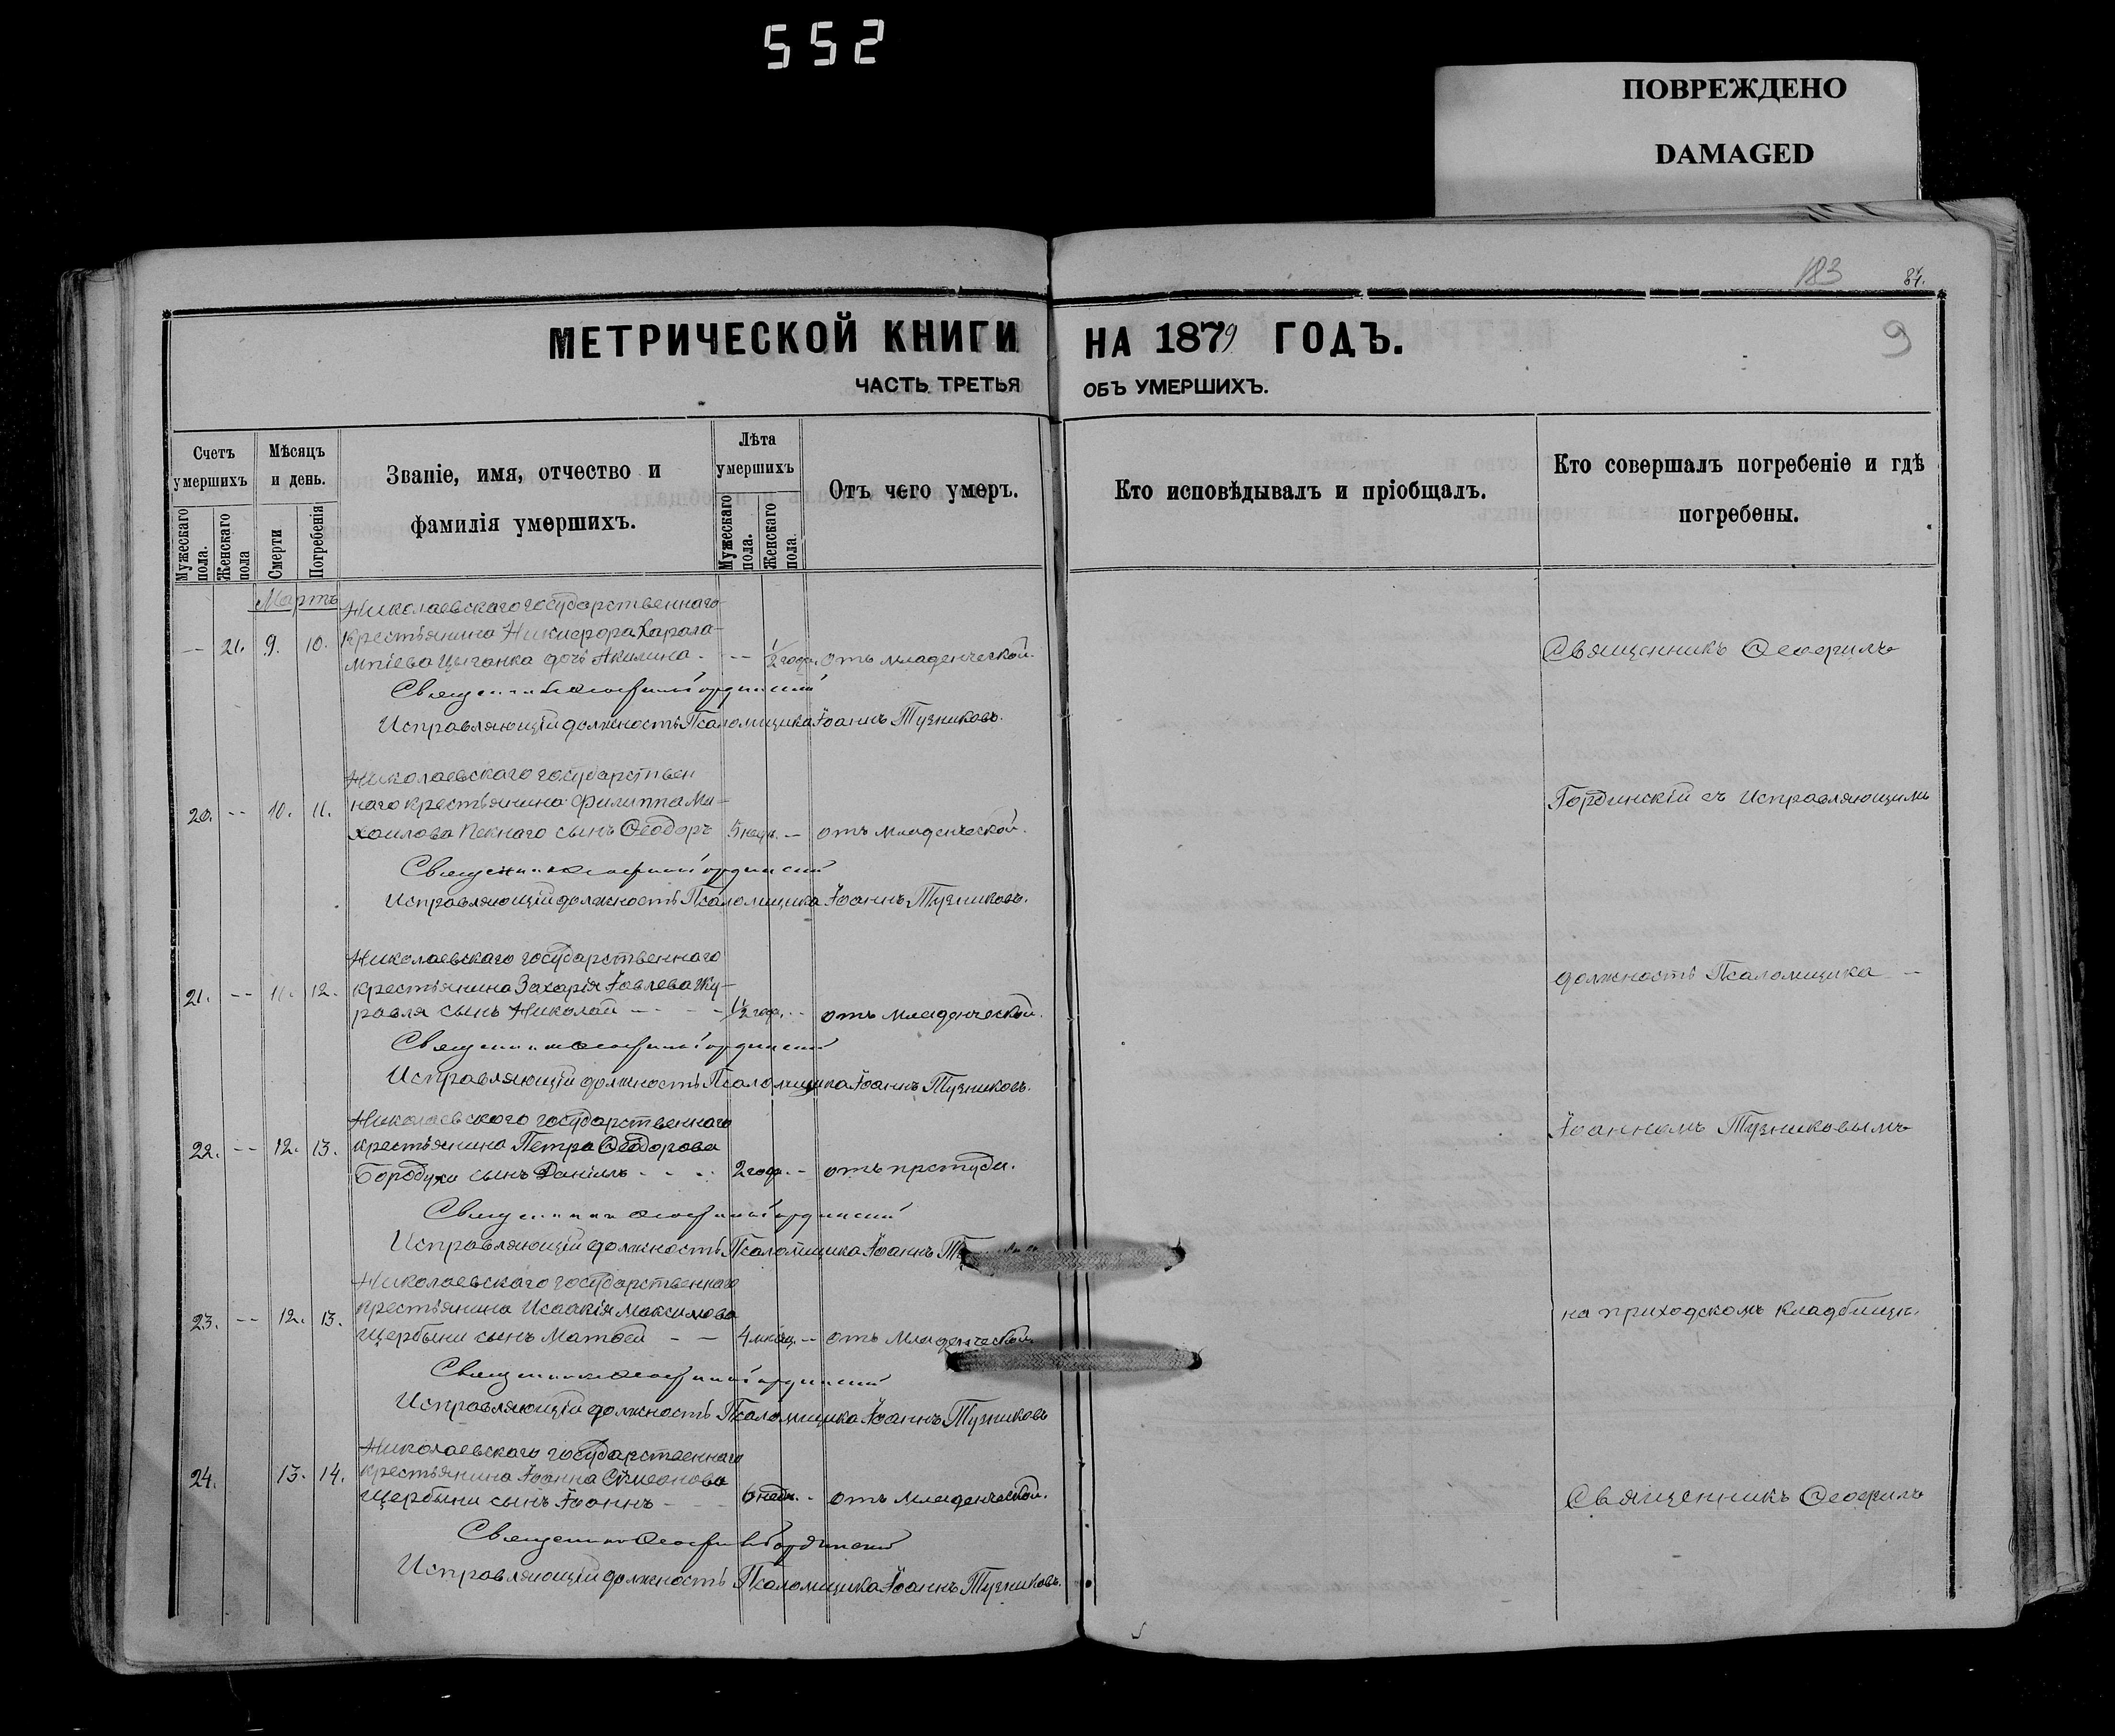 552
ПОВРЕЖДЕНО
DAMAGED
183
84.
9
МЕТРИЧЕСКОЙ КНИГИ НА 1879 ГОДЪ.
ЧАСТЬ ТРЕТЬЯ ОБЪ УМЕРШИХЪ.
Счетъ умершихъ
Мужескаго пола.
Женскаго пола
Мѣсяцъ и день.
Смерти
Погребенія
Званіе, имя, отчество и
фамилія умершихъ.
Лѣта умершихъ
Мужескаго пола.
Женскаго пола.
Отъ чего умеръ.
Кто исповѣдывалъ и пріобщалъ.
Кто совершалъ погребеніе и гдѣ
погребены.
Мартъ
Николаевскаго государственнаго
— 21. 9. 10. крестьянина Никифора Харала-
мпіева Цыганка дочь Акилина - — ½ года. отъ младенческой.
Священникъ Ѳеофилъ Гординскій
Исправляющій должность Псаломщика Іоаннъ Тузниковъ.
Николаевскаго государствен
20. -- 10. 11. наго крестьянина Филиппа Ми-
хаилова Пекнаго сынъ Ѳеодоръ 5 нед. — отъ младенческой.
Священникъ Ѳеофилъ Гординскій
Исправляющій должность Псаломщика Іоаннъ Тузниковъ.
Николаевскаго государственнаго
21. -- 11. 12. крестьянина Захарія Іовлева Жу-
равля сынъ Николай - - - 1½ год. - отъ младенческой.
Священникъ Ѳеофилъ Гординскій
Исправляющій должность Псаломщика Іоаннъ Тузниковъ.
Николаевскаго государственнаго
22. -- 12. 13. крестьянина Петра Ѳеодорова
Бородухи сынъ Даніилъ - - - 2 года. - отъ прстуды.
Священникъ Ѳеофилъ Гординскій
Исправляющій должность Псаломщика Іоаннъ
Николаевскаго государственнаго
23. -- 12. 13. крестьянина Исаакія Максимова
Щербыни сынъ Матѳей - — 4 мѣсяц. — отъ Младенческой.
Священникъ Ѳеофилъ Гординскій
Исправляющій должность Псаломщика Іоаннъ Тузниковъ
Николаевскаго государственнаго
24. 13. 14. крестьянина Іоанна Сѵмеонова
Щербыни сынъ Іоаннъ - - - 6 недѣл. - отъ Младенческой.
Священникъ Ѳеофилъ Гординскій
Исправляющій должность Псаломщика Іоаннъ Тузниковъ.
Священникъ Ѳеофилъ
Гординскій съ Исправляющимъ
должность Псаломщика —
Іоанномъ Тузниковымъ
на приходскомъ кладбищѣ.
Священникъ Ѳеофилъ